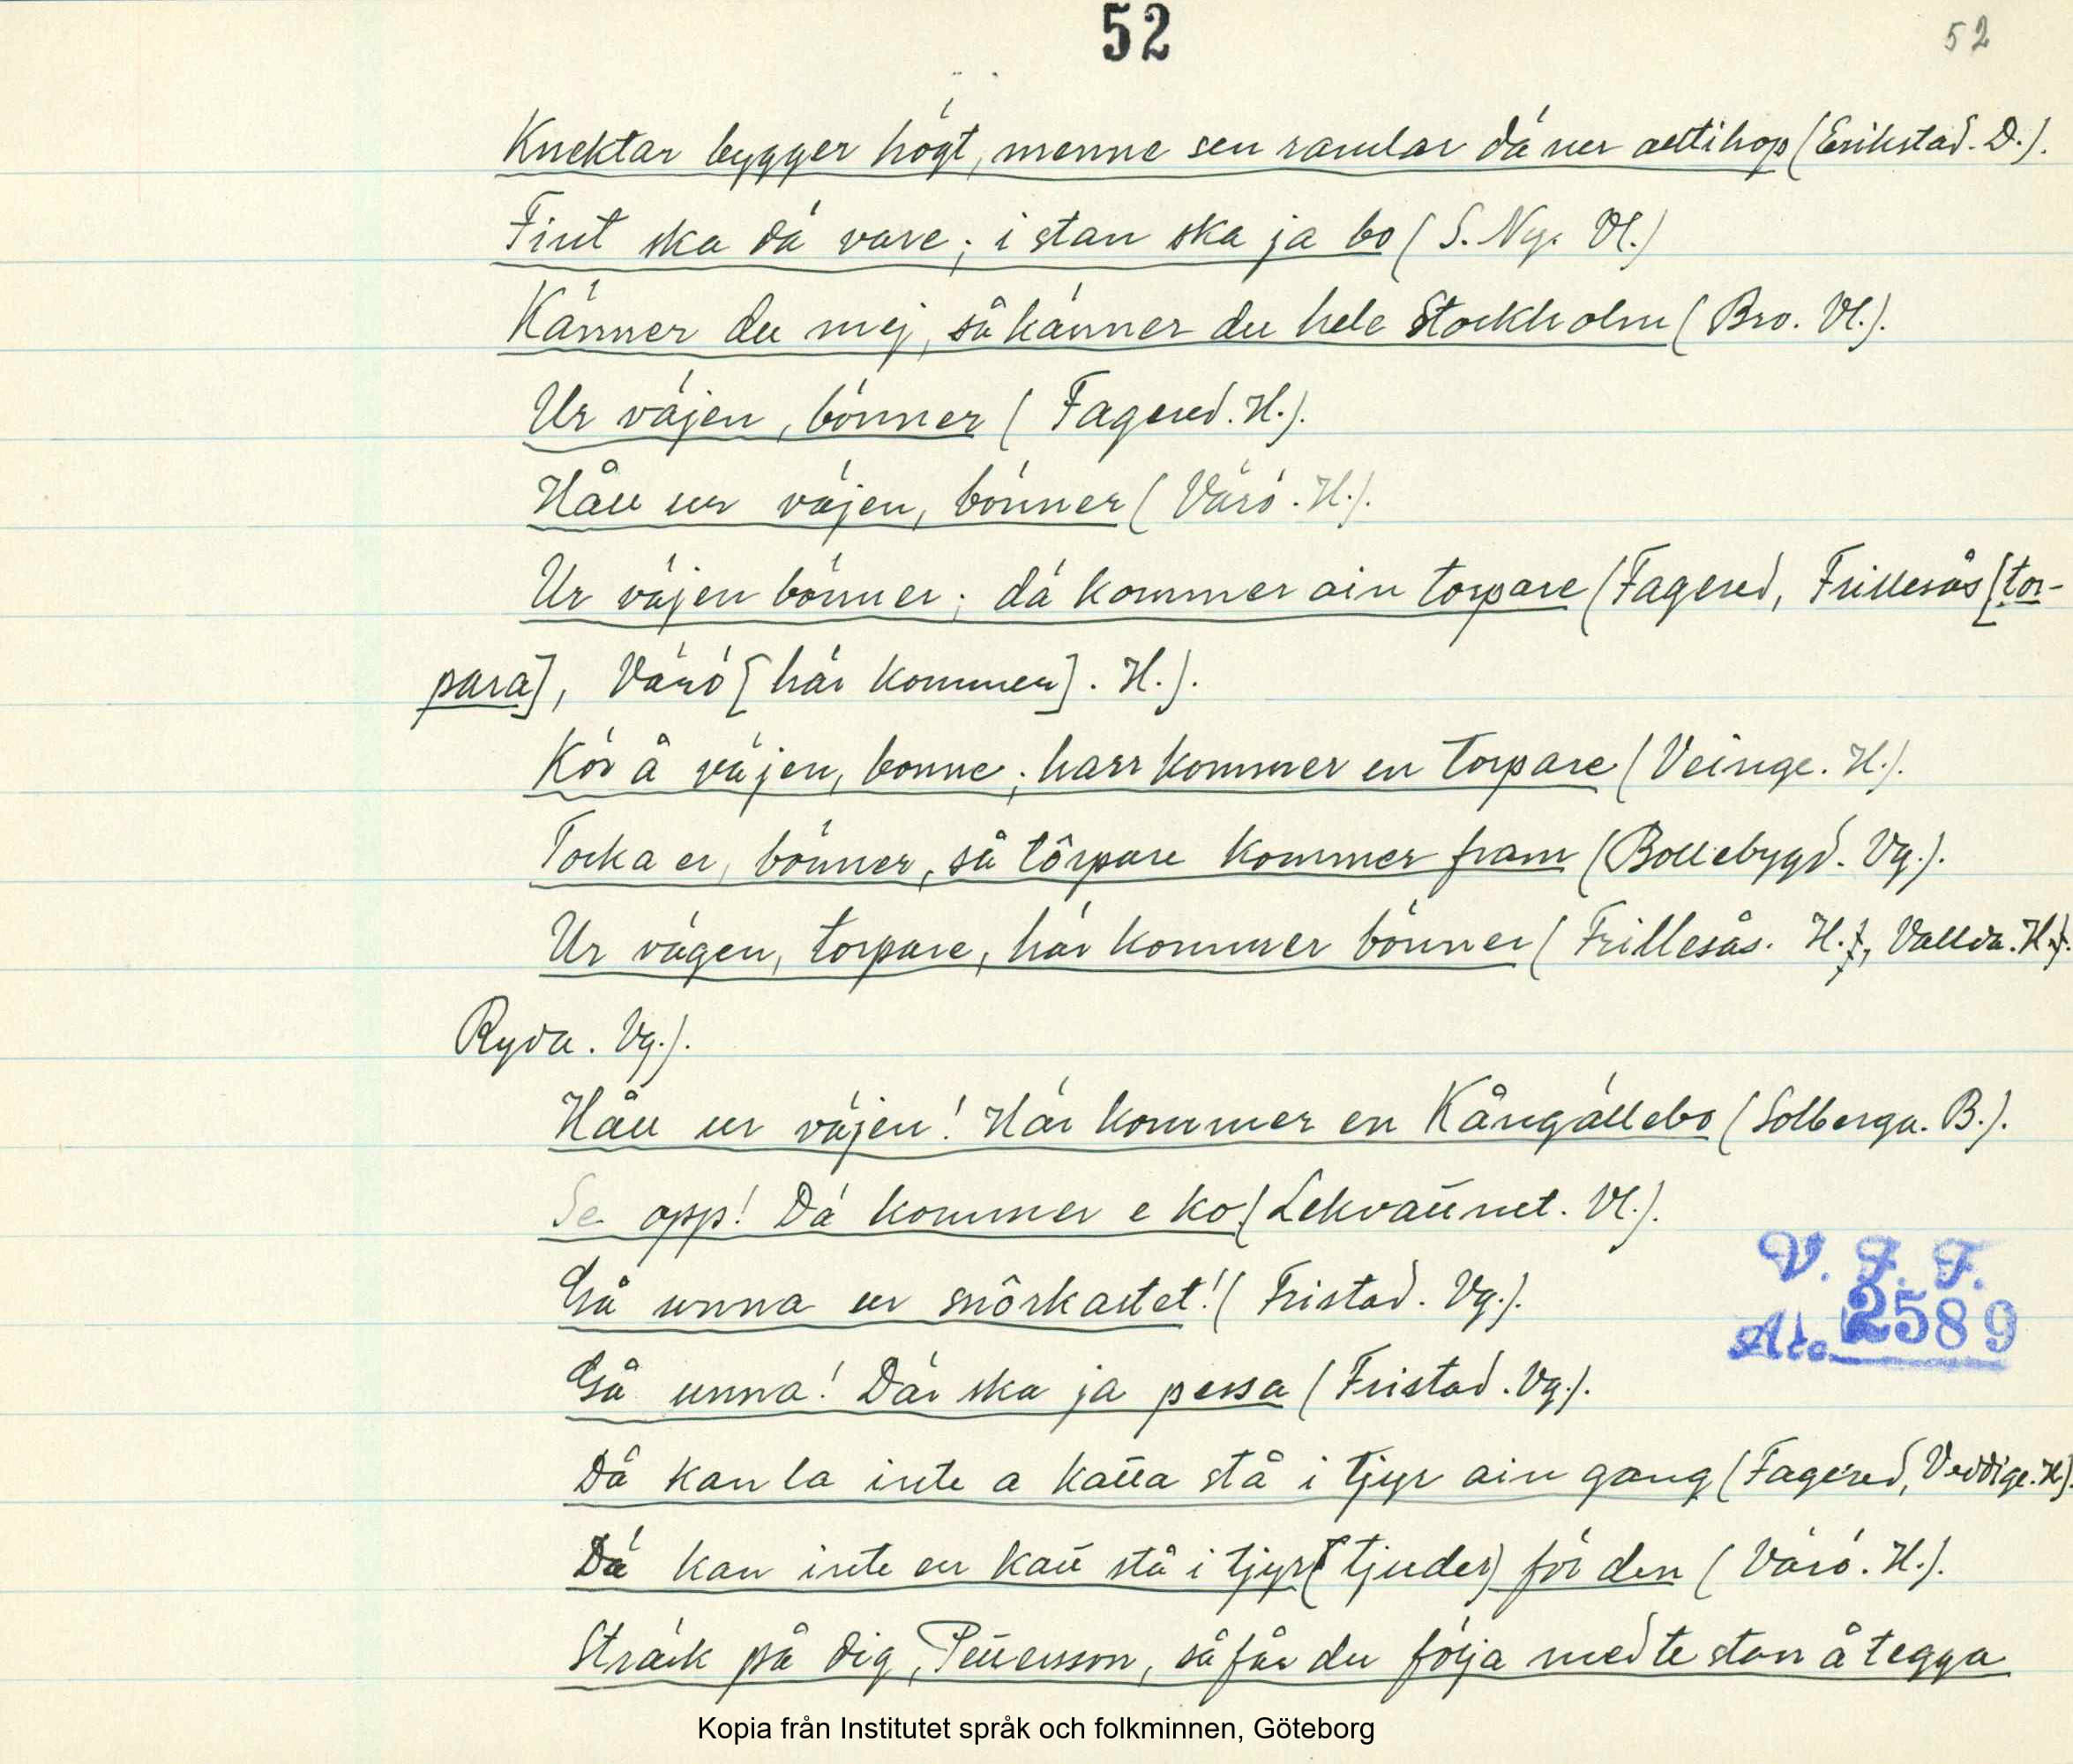 52
52
Knektar bygger högt, menne sen ramlar dä ner alltihop (Erikstad. D.).
Fint ska dä vare; i stan ska ja bo (S. Ny. Vl.)
Känner du mej, så känner du hele Stockholm (Bro. Vl.).
Ur väjen, bönner (Fagered. H.).
Håll ur väjen, bönner (Värö. H.).
Ur väjen bönner; dä kommer ain torpare (Fagered, Frillesås [tor-
para], Värö [här kommer]. H.).
Kör å väjen, bonne; harr kommer en torpare (Veinge. H.).
Tocka er, bönner, så tôrpare kommer fram (Bollebygd. Vg.).
Ur vägen, torpare, här kommer bönner (Frillesås. H., Vallda. H.
Ryda. Vg.).
Håll ur väjen! Här kommer en Kångällebo (Solberga. B.).
Se opp! Dä kommer e ko! (Lekvattnet. Vl.).
Gå unna ur snôrkastet! (Fristad. Vg.).
Gå unna! Där ska ja pessa (Fristad. Vg.).
Dä kan la inte a katta stå i tjyr ain gang (Fagered, Veddige. H).
Dä kan inte en katt stå i tjyr (tjuder) för den (Värö. H.).
Sträck på dig, Pettersson, så får du följa med te stan å tegga
V. F. F.
Atc 2589
Kopia från Institutet språk och folkminnen, Göteborg